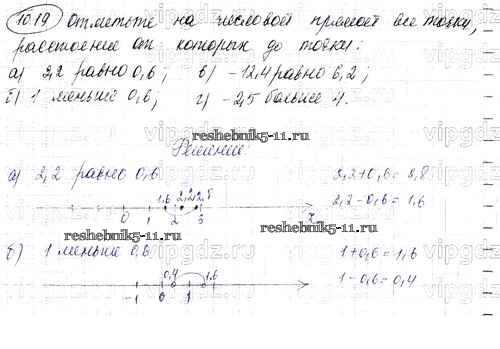 1019 Отметьте на числовой прямой все точки,
расстояние от которых до точки:
а) 2,2 равно 0,6; в) -12,4 равно 6,2;
б) 1 меньше 0,6; г) -2,5 больше 4.
reshebnik5-11.ru
Решение:
а) 2,2 равно 0,6 2,2+0,6=2,8
1,6 2,2 2,8 2,2-0,6=1,6
0 1 2 3 x
reshebnik5-11.ru
б) 1 меньше 0,6 1+0,6=1,6
0,4 1,6 1-0,6=0,4
-1 0 1
vipgdz.ru